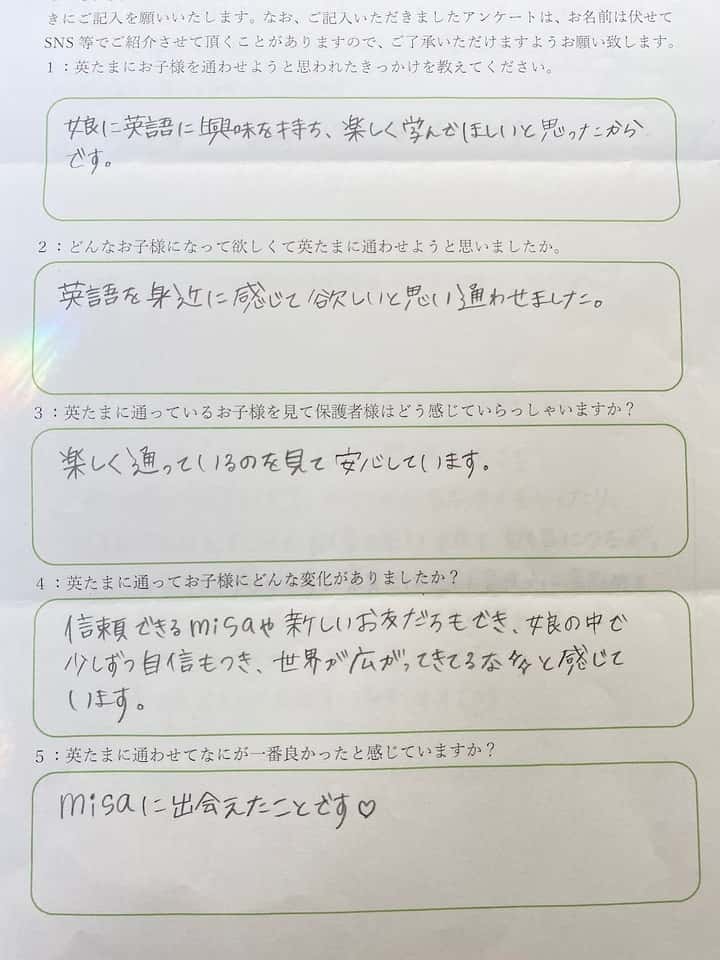 きにご記入を願いいたします。なお、ご記入いただきましたアンケートは、お名前は伏せて
SNS 等でご紹介させて頂くことがありますので、ご了承いただけますようお願い致します。
1：英たまにお子様を通わせようと思われたきっかけを教えてください。
娘に英語に興味を持ち、楽しく学んでほしいと思ったから
です。
2：どんなお子様になって欲しくて英たまに通わせようと思いましたか。
英語を身近に感じて欲しいと思い通わせました。
3：英たまに通っているお子様を見て保護者様はどう感じていらっしゃいますか？
楽しく通っているのを見て安心しています。
4：英たまに通ってお子様にどんな変化がありましたか？
信頼できるmisaや新しいお友だちもでき、娘の中で
少しずつ自信もつき、世界が広がってきてるな々と感じて
います。
5：英たまに通わせてなにが一番良かったと感じていますか？
misaに出会えたことです♡